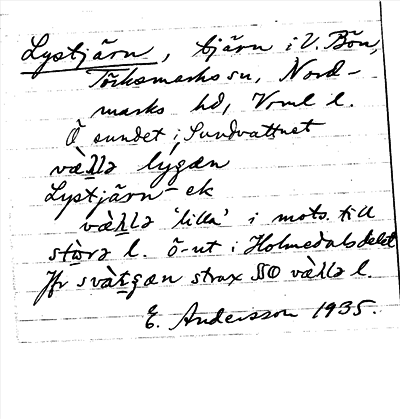 Lystjärn, tjärn i V. Bön,
Törksmarks sn, Nord-
marks hd, Vrml l.
Ö sundet i Sundvattnet
vällə lygæn
Lystjärn-ek
vällə 'lilla' i mots. till
störə l. ö-ut i Holmedalsdelet
Jfr svàtgæn strax SO vällə l.
E. Andersson 1935.